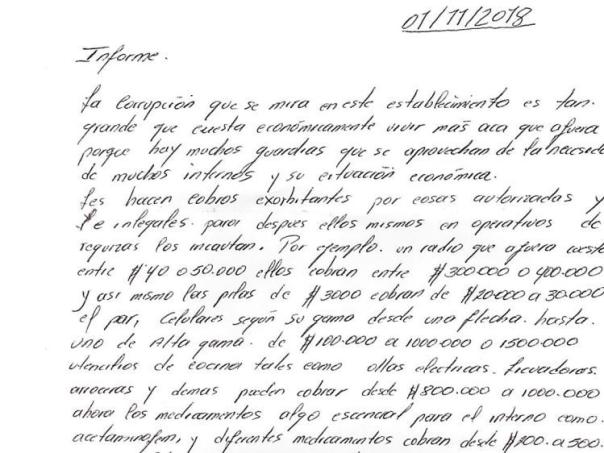 01/11/2018
Informe.
La Corrupción que se mira en este establecimiento es tan
grande que cuesta económicamente vivir mas aca que afuera
porque hay muchos guardias que se aprovechan de la necesida
de muchos internos y su cituación económica.
Les hacen cobros exorbitantes por cosas autorizadas y
e inlegales. para despues ellos mismos en operativos de
requizas los incautan. Por ejemplo. un radio que afuera cuesta
entre $40 o 50.000 ellos cobran entre $300.000 o 400.000
y asi mismo las pilas de $3000 cobran de $20.000 a 30.000
el par, Celulares según su gama desde una flecha. hasta.
uno de Alta gama. de $100.000 a 1000.000 o 1500.000
utencilios de cocina tales como ollas electricas. Licuadoras.
arroceras y demas pueden cobrar desde $800.000 a 1000.000
ahora los medicamentos algo escencial para el interno como.
acetaminofem, y diferentes medicamentos cobran desde $200. a 500.